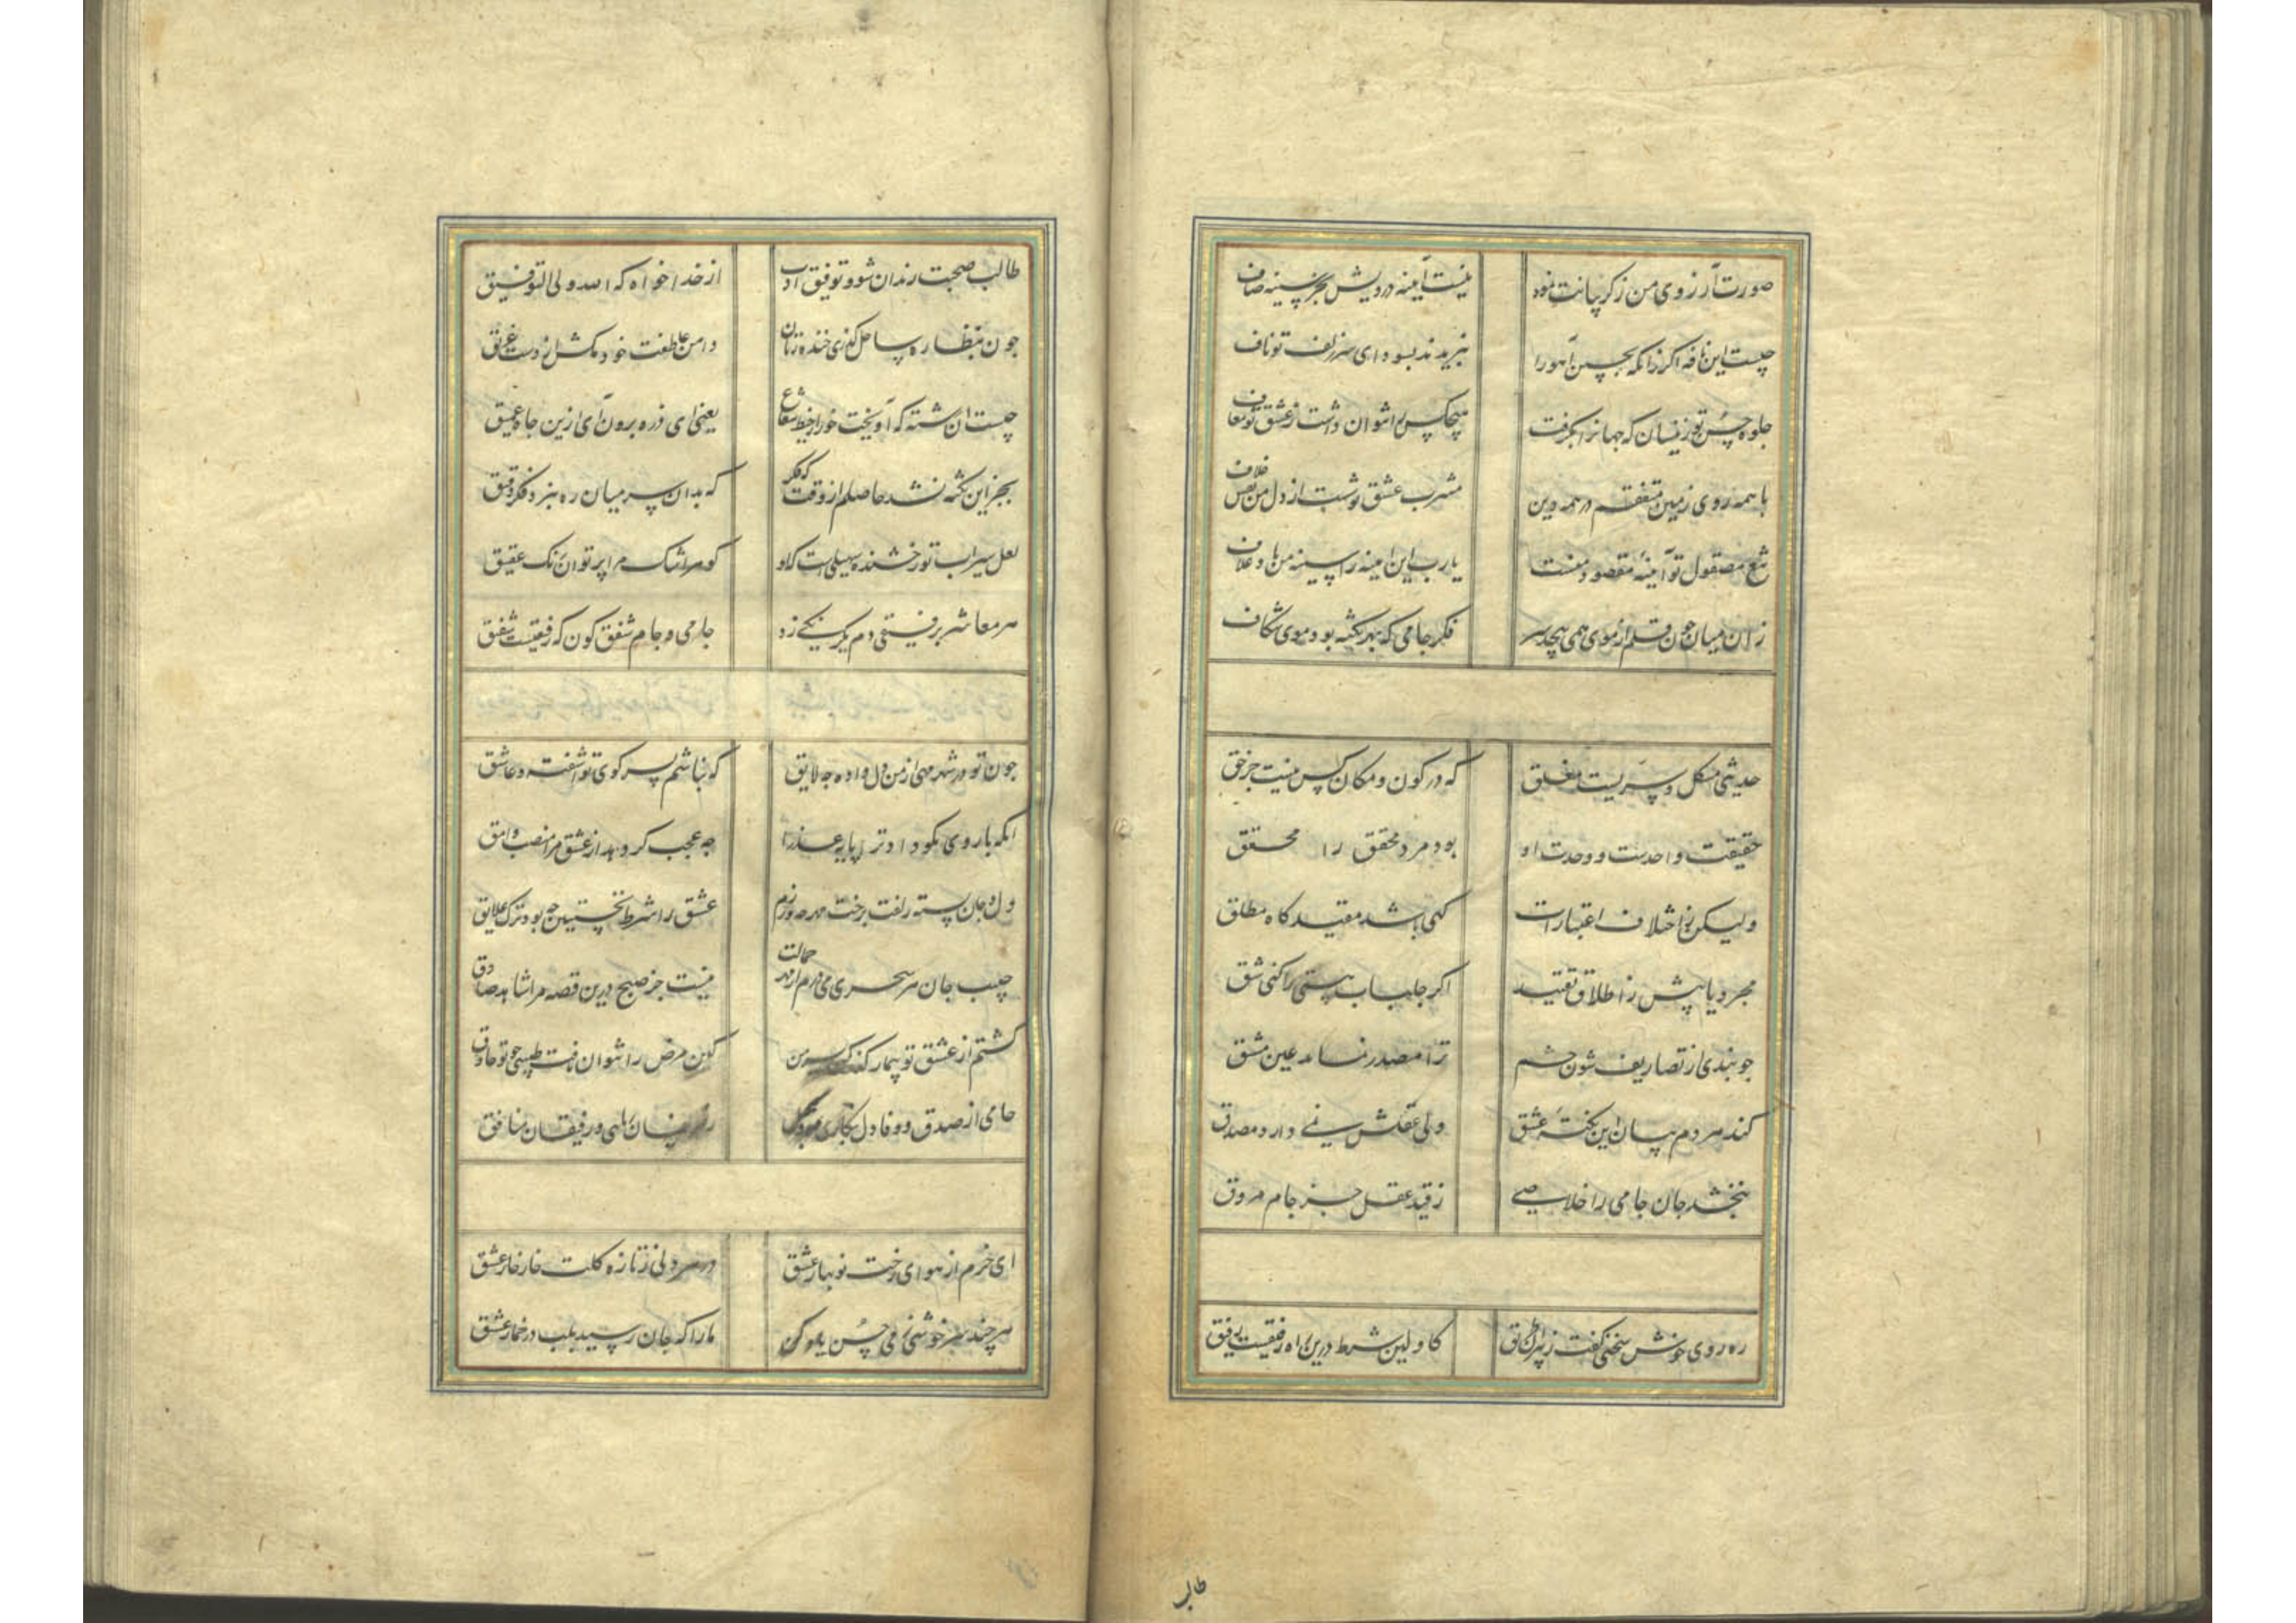 صورت آرزوی من ز کریبانت نمود نیست آیینه درویش بجز سینه صاف
چیست این نافه اگر زانکه بچین آهو را نبریدند بسودای سر زلف تو ناف
جلوه حسن تو زینسان که جهانرا بکرفت هیچکس را نتوان داشت ز عشق تو معاف
با همه روی زمین متفقم در همه دین مشرب عشق تو شست از دل من نقش خلاف
مصقول تو آیینه مقصود منست یارب این آینه را سینه من باد غلاف
زان میان جون قلم از موی همی پیچد سر فکر جامی که بهر نکته بود موی شکاف
حدیثی مشکل و سریست مغلق که در کون و مکان کس نیست جز حق
حقیقت واحدست و وحدت او بود مرد محقق را محقق
ولیکن با اختلاف اعتبارات کهی باشد مقید کاه مطلق
مجرد یابیش ز اطلاق و تقیید اکر جلباب هستی را کنی شق
جو بندی از تصاریف شون چشم ترا مصدر نماید عین مشتق
کند هر دم بیان این نکته عشق ولی عقلش نمی دارد مصدق
نبخشد جان جامی را خلاصی ز قید عقل جز جام مروق
ره روی خوش سخنی کفت ز پیران طریق کاولین شرط درین راه رفیقست رفیق
طالب
طالب صحبت رندان شو و توفیق ادب از خدا خواه که الله ولی التوفیق
جون بنظاره ساحل کذری خنده زنان دامن عاطفت خود مکش از دست غریق
چیست ان رشته که آویخت خور از خط شعاع یعنی ای ذره برون آی ازین جاه عمیق
بجز این نکته نشد حاصلم از وقت فکر که بدان سر میان ره نبرد فکر دقیق
لعل سیراب تو رخشنده سهیلی است کزو کوهر اشک مرا پرتو ان رنک عقیق
هر معاشر برفیقی دم یکرنکی زد جامی و جام شفق کون که رفیقیست شفیق
جون تو در شهر مهی از من دل داده جه لایق که نباشم بسر کوی تو اشفته و عاشق
انکه با روی نکو داد ترا پایه عذرا جه عجب کر دهد از عشق مرا منصب وامق
دل و جان بسته زلفت برخت مهر جه ورزم عشق را شرط نخستین جو بود ترک علایق
جیب جان هر سحری می درم از مهر جمالت نیست جز صبح درین قصه مرا شاهد صادق
کشتم از عشق تو بیمار من کین مرض را نتوان یافت طبیبی جو تو حاذق
جامی از صدق و وفا دل رفیقان منافق
ای خرم از هوای رخت نوبهار عشق در هر دلی ز تازه کلت خار خار عشق
هر چند سرخوشی ز می حسن یاد کن ما را که جان رسید بلب در خمار عشق